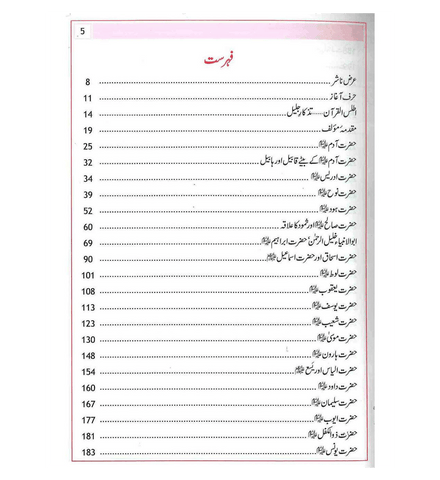 5
فہرست
عرض ناشر 8
حرف آغاز 11
اطلس القرآن ..... تذکار جلیل 14
مقدمۂ مؤلف 19
حضرت آدم علیہ السلام 25
حضرت آدم علیہ السلام کے بیٹے قابیل اور ہابیل 32
حضرت ادریس علیہ السلام 34
حضرت نوح علیہ السلام 39
حضرت ہود علیہ السلام 52
حضرت صالح علیہ السلام اور ثمود کا علاقہ 60
ابوالانبیاء خلیل الرحمٰن حضرت ابراہیم علیہ السلام 69
حضرت اسحاق اور حضرت اسماعیل علیہما السلام 90
حضرت لوط علیہ السلام 101
حضرت یعقوب علیہ السلام 108
حضرت یوسف علیہ السلام 113
حضرت شعیب علیہ السلام 123
حضرت موسیٰ علیہ السلام 130
حضرت ہارون علیہ السلام 148
حضرت الیاس اور یسع علیہما السلام 154
حضرت داود علیہ السلام 160
حضرت سلیمان علیہ السلام 167
حضرت ایوب علیہ السلام 177
حضرت ذوالکفل علیہ السلام 181
حضرت یونس علیہ السلام 183